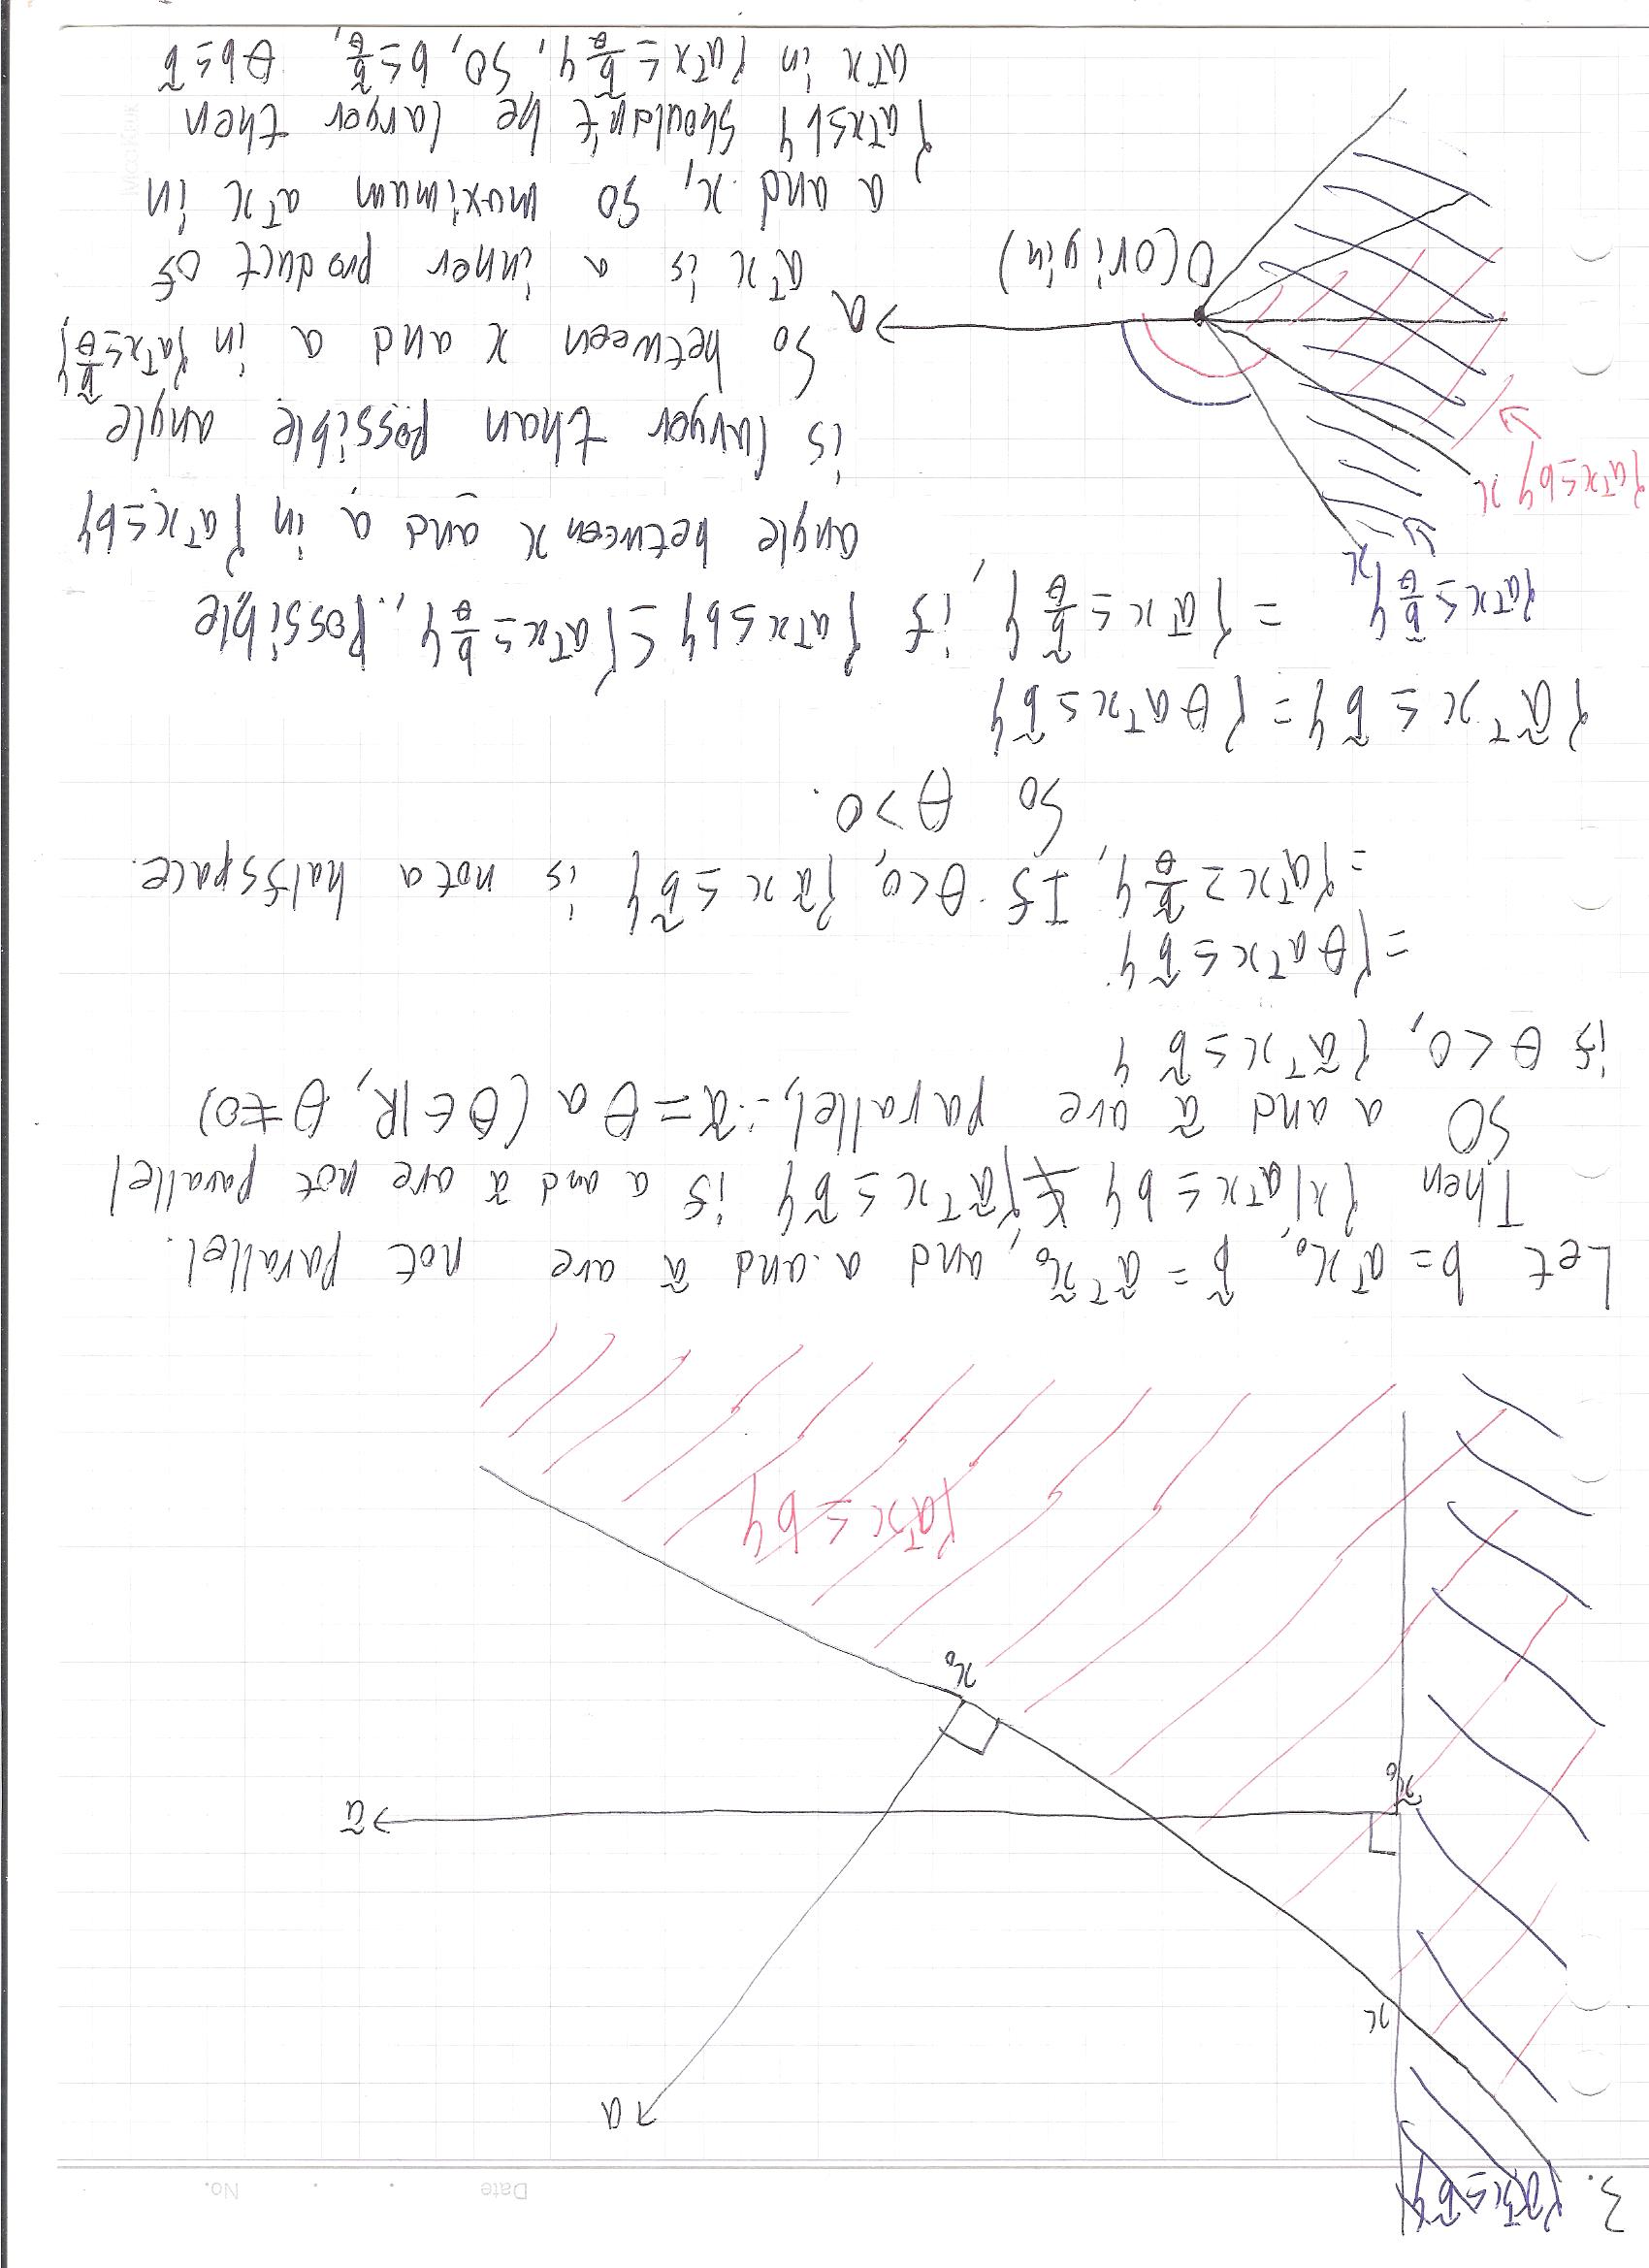 3. {ãᵀx ≤ b̃}
Date . . No.
a
x
ã
x̃₀
x₀
{aᵀx ≤ b}
Let b = aᵀx₀, b̃ = ãᵀx̃₀, and a and ã are not parallel.
Then {x|aᵀx ≤ b} ⊈ {ãᵀx ≤ b̃} if a and ã are not parallel
So a and ã are parallel, ∴ ã = θa (θ∈ℝ, θ≠0)
if θ<0, {ãᵀx ≤ b̃}
= {θaᵀx ≤ b̃}
= {aᵀx ≥ b̃/θ}, If θ<0, {ãx ≤ b̃} is not a halfspace.
So θ>0.
{ãᵀx ≤ b̃} = {θaᵀx ≤ b̃}
= {aᵀx ≤ b̃/θ}, if {aᵀx ≤ b} ⊆ {aᵀx ≤ b̃/θ}, Possible
angle between x and a in {aᵀx ≤ b}
is larger than possible angle
So between x and a in {aᵀx ≤ b̃/θ}
aᵀx is a inner product of
a and x, so maximum aᵀx in
{aᵀx ≤ b} shouldn't be larger then
aᵀx in {aᵀx ≤ b̃/θ}. So, b ≤ b̃/θ, θb ≤ b̃
{aᵀx ≤ b̃/θ}
x
{aᵀx ≤ b} x
a
O(origin)